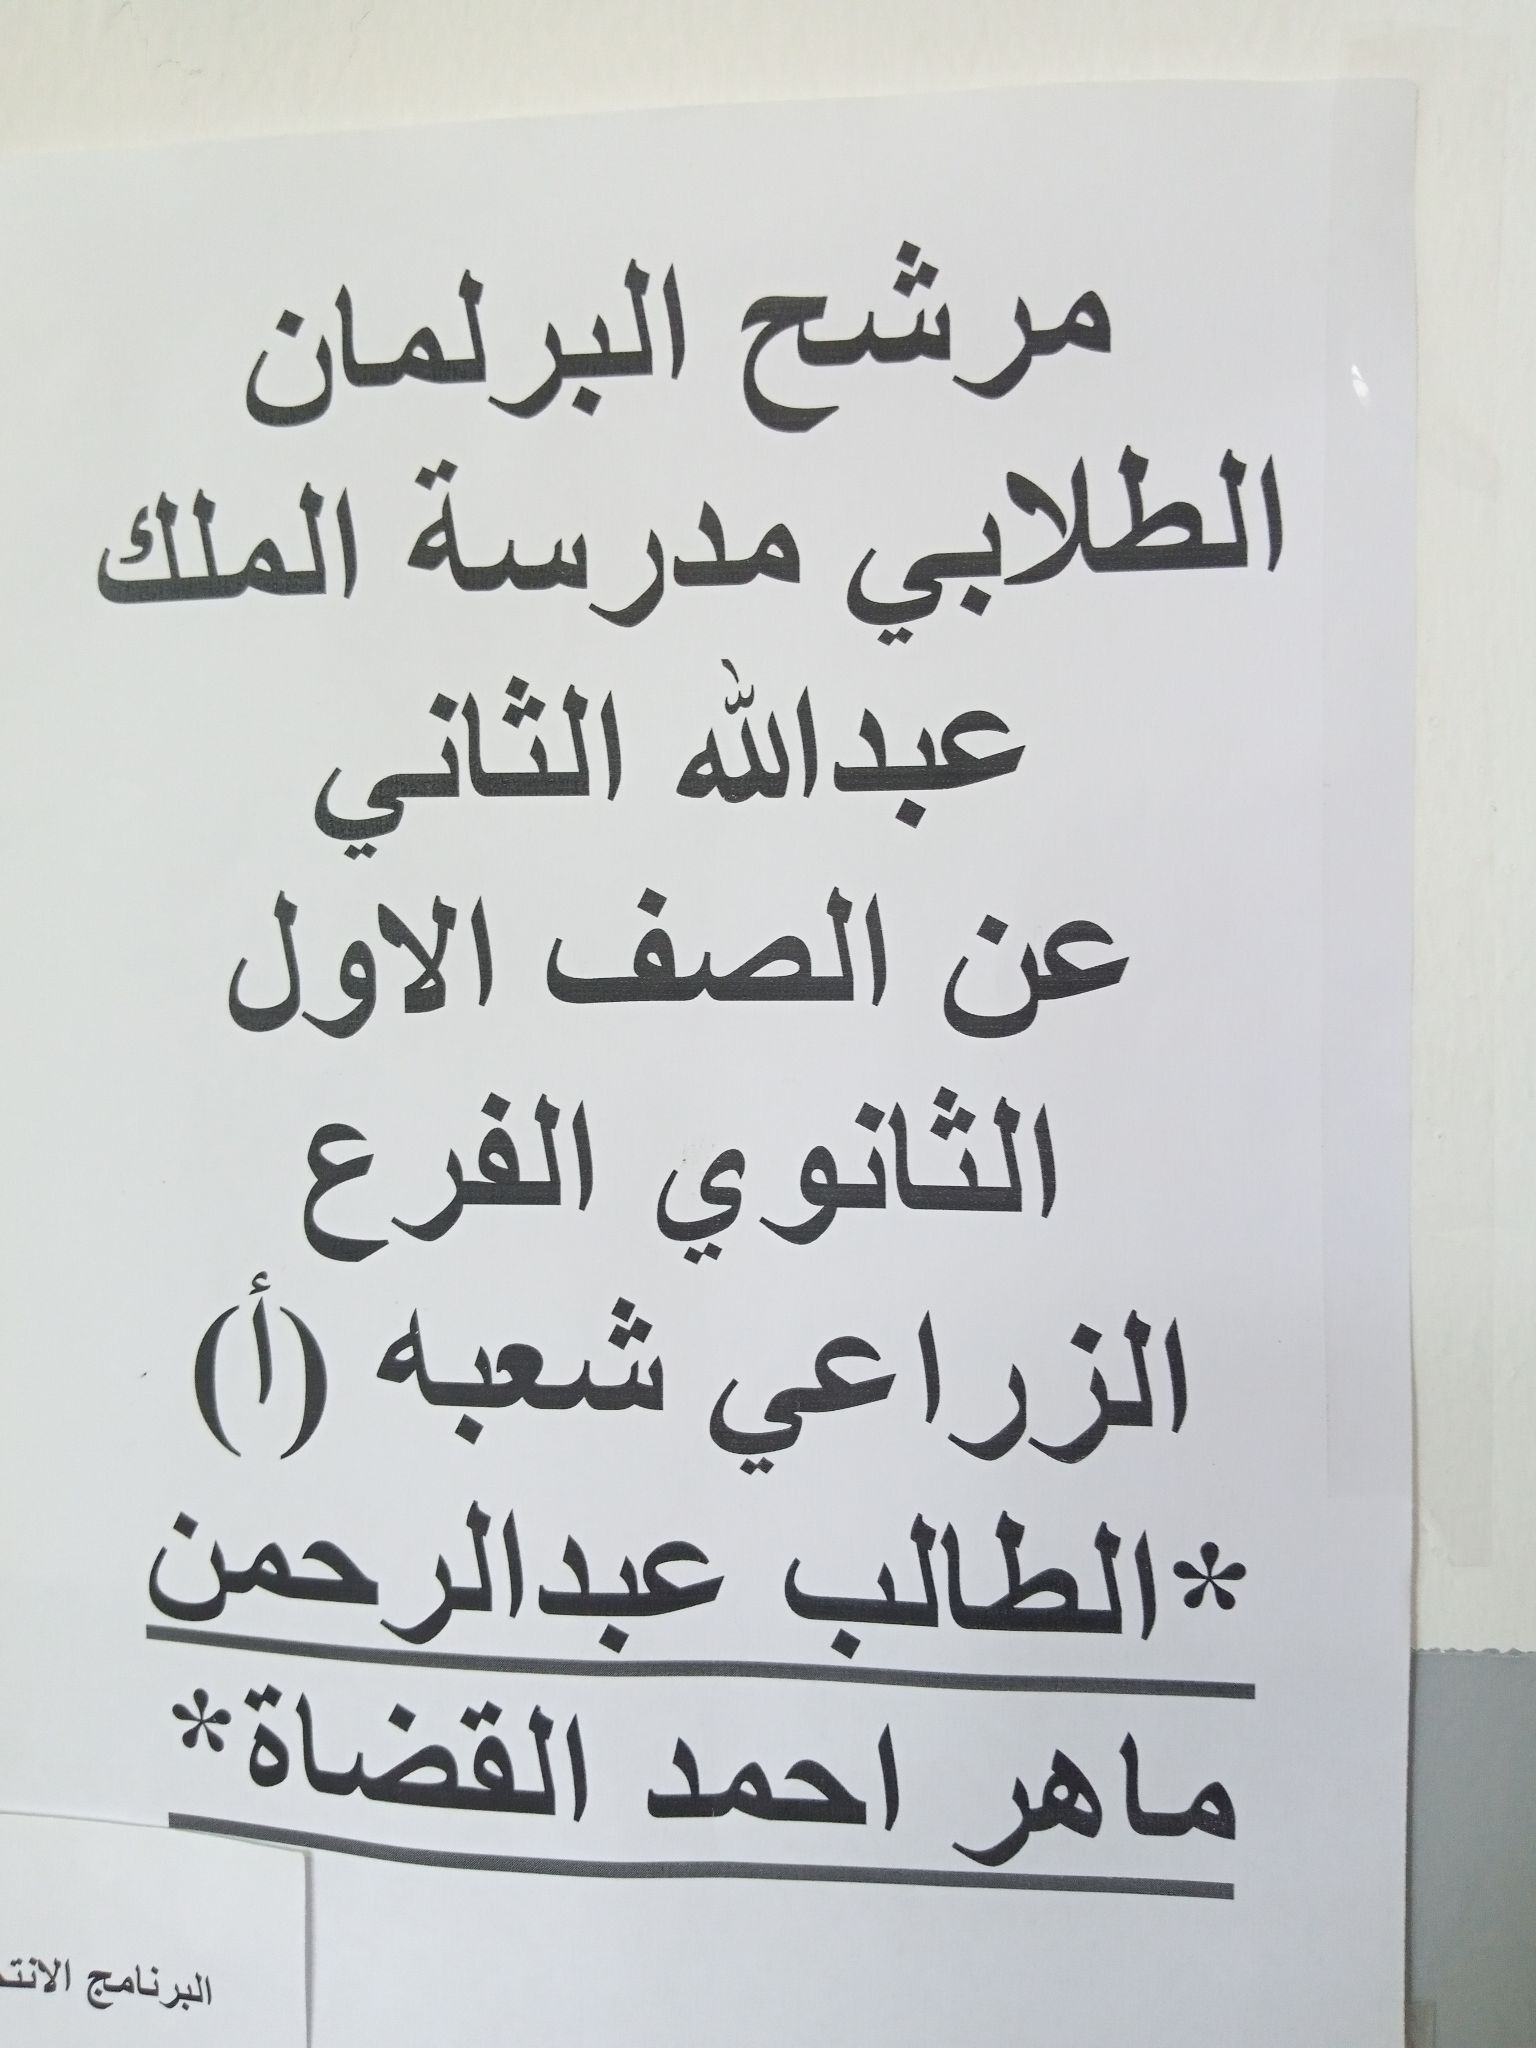 مرشح البرلمان
الطلابي مدرسة الملك
عبدالله الثاني
عن الصف الاول
الثانوي الفرع
الزراعي شعبه (أ)
*الطالب عبدالرحمن
ماهر احمد القضاة*
البرنامج